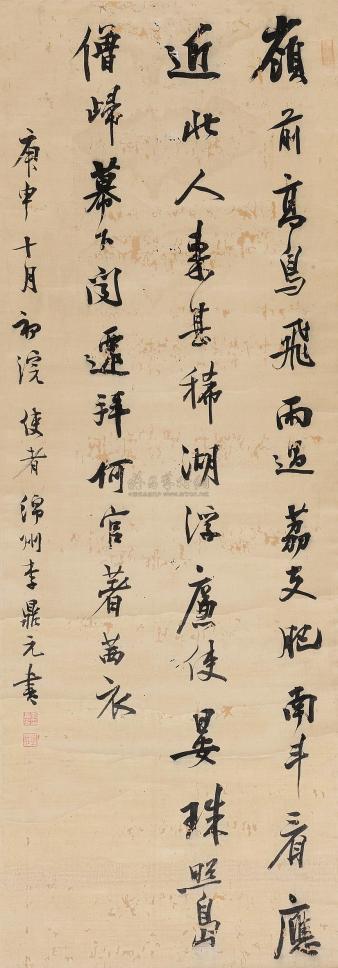 嶺前高鳥飛雨過荔支肥南斗看應
近北人來甚稀湖浮廉使晏珠照島
僧歸幕下閔遷拜何官著茜衣
庚申十月初浣使者綿州李鼎元書